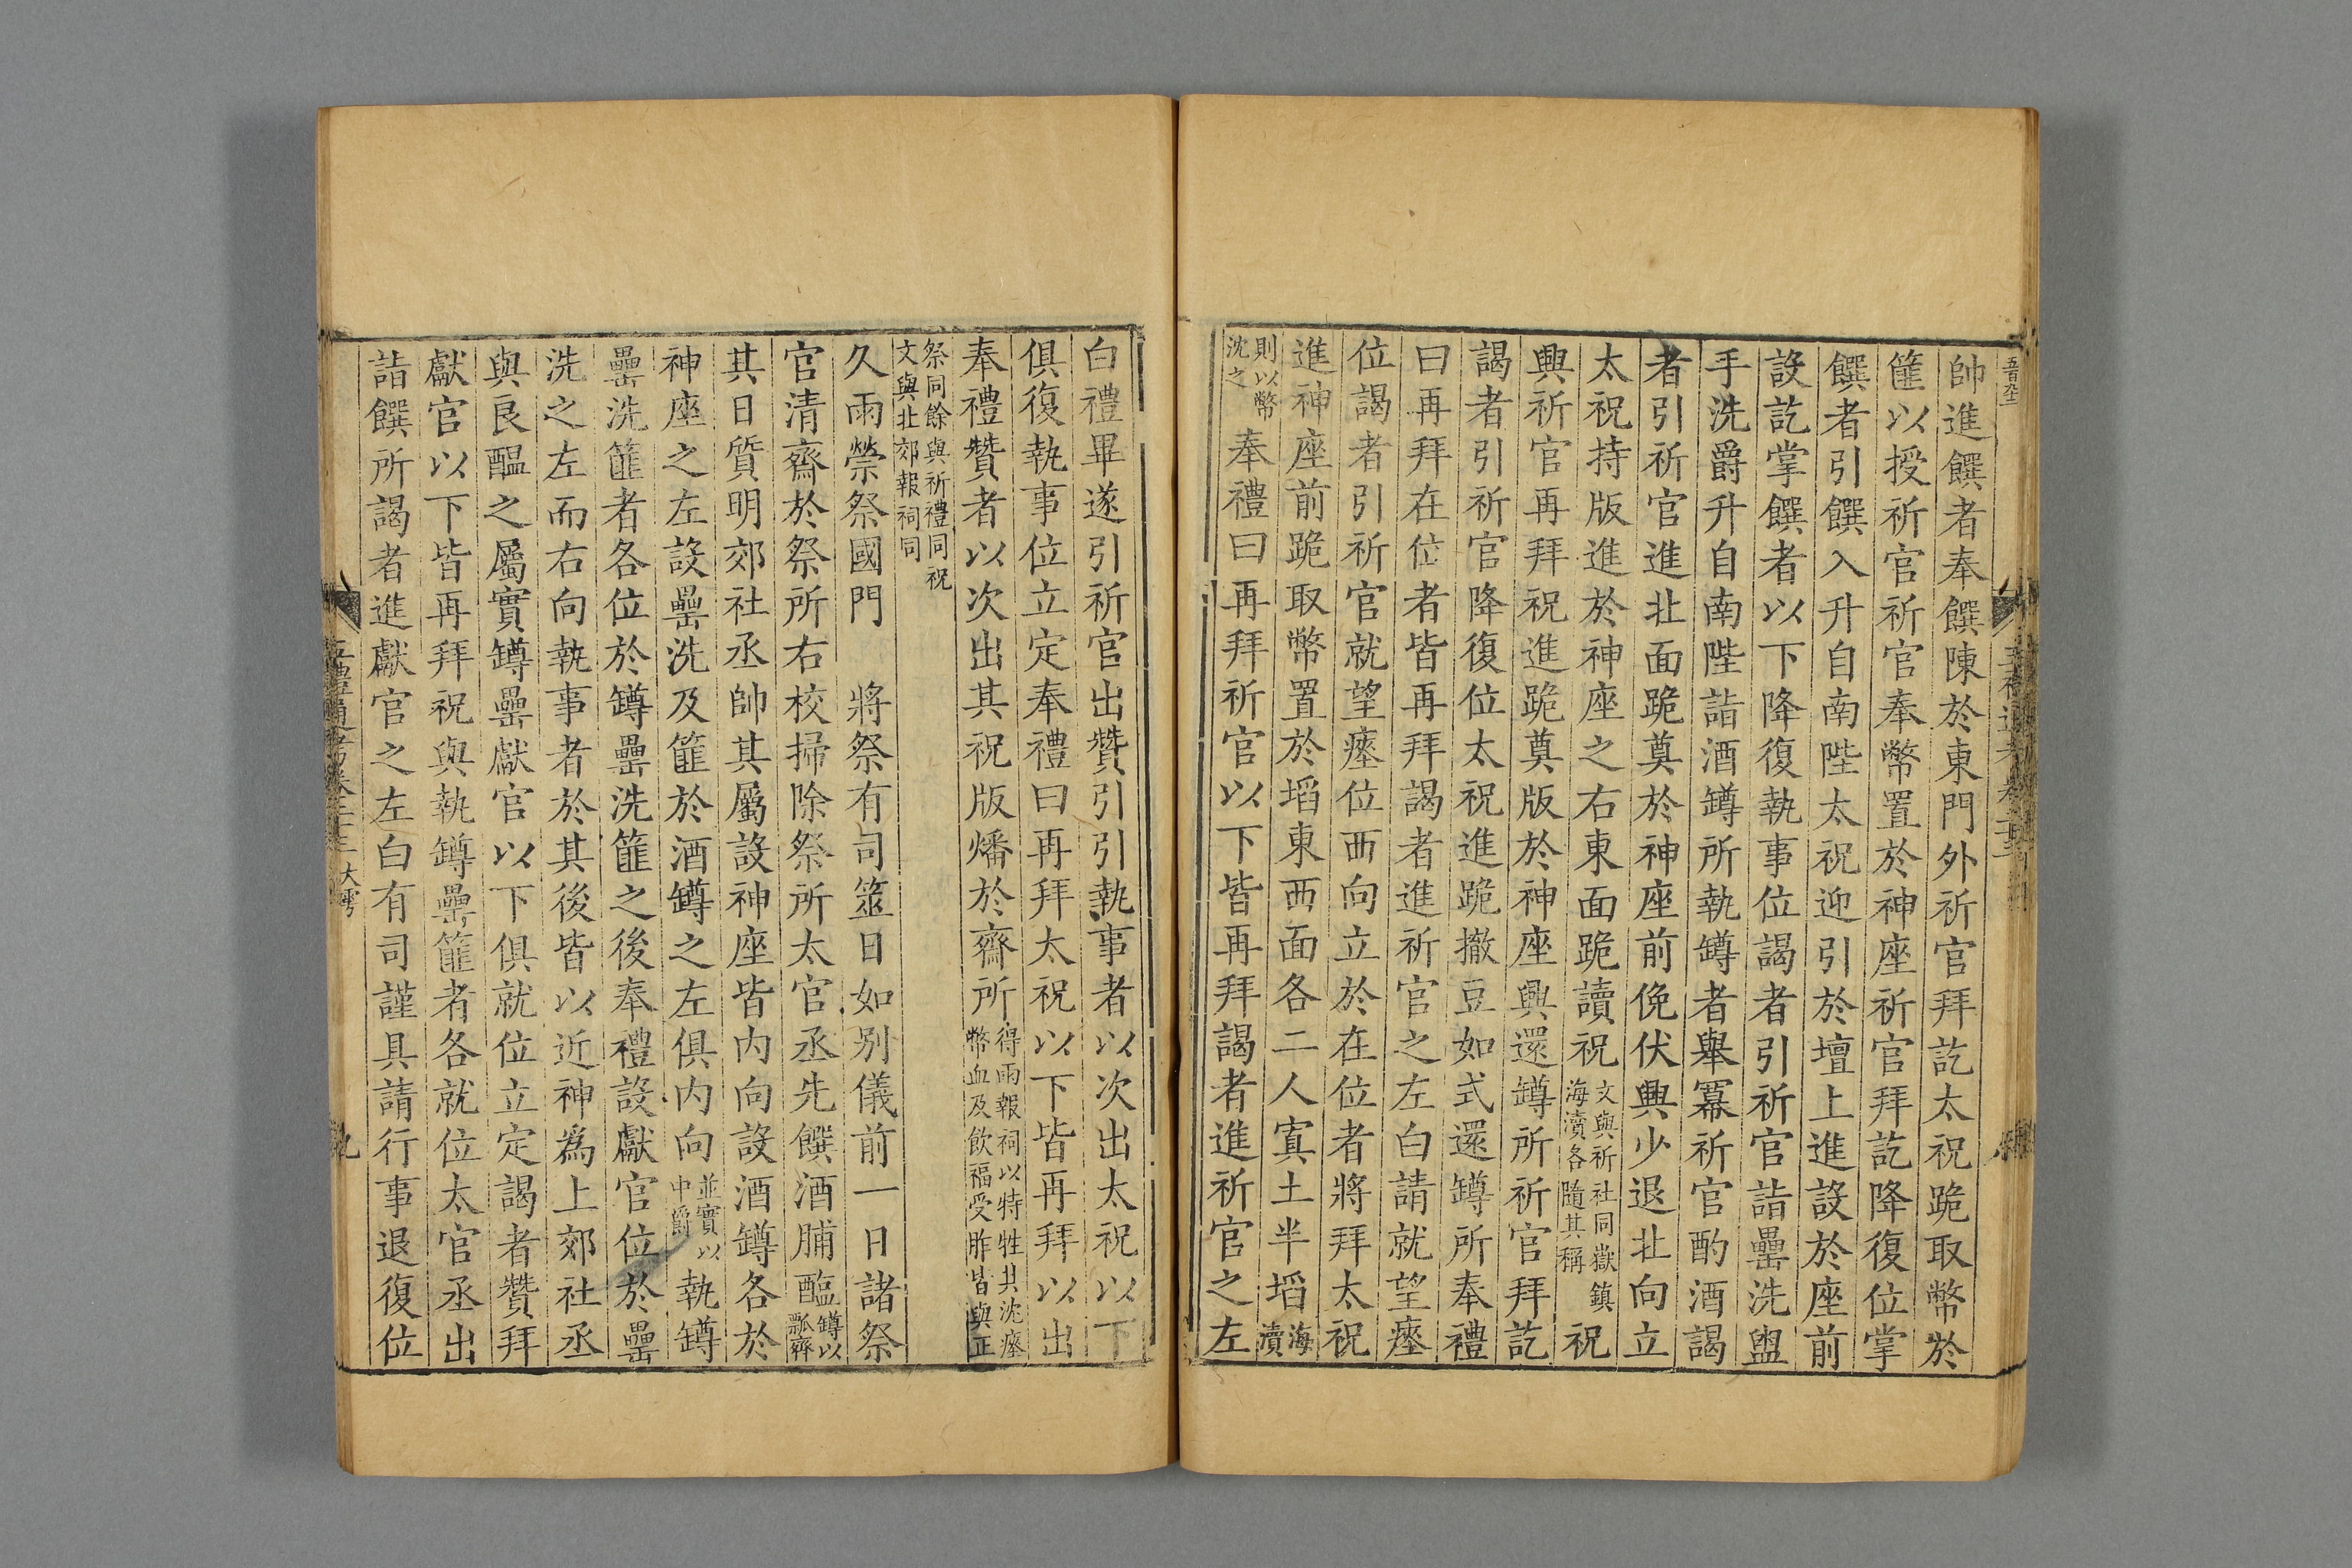 帥進饌者奉饌陳於東門外祈官拜訖太祝跪取幣於
篚以授祈官祈官奉幣置於神座祈官拜訖降復位掌
饌者引饌入升自南陛太祝迎引於壇上進設於座前
設訖掌饌者以下降復執事位謁者引祈官詣罍洗盥
手洗爵升自南陛詣酒罇所執罇者舉冪祈官酌酒謁
者引祈官進北面跪奠於神座前俛伏興少退北向立
太祝持版進於神座之右東面跪讀祝文與祈社同嶽鎮海瀆各隨其稱祝
興祈官再拜祝進跪奠版於神座興還罇所祈官拜訖
謁者引祈官降復位太祝進跪撤豆如式還罇所奉禮
曰再拜在位者皆再拜謁者進祈官之左白請就望瘞
位謁者引祈官就望瘞位西向立於在位者將拜太祝
進神座前跪取幣置於塪東西面各二人寘土半塪海瀆
則以幣沈之奉禮曰再拜祈官以下皆再拜謁者進祈官之左
白禮畢遂引祈官出贊引引執事者以次出太祝以下
俱復執事位立定奉禮曰再拜太祝以下皆再拜以出
奉禮贊者以次出其祝版燔於齋所得雨報祠以特牲其沈瘞幣血及飲福受胙皆與正
祭同餘與祈禮同祝文與北郊報祠同
久雨禜祭國門　將祭有司筮日如別儀前一日諸祭
官清齋於祭所右校掃除祭所太官丞先饌酒脯醢罇以瓢齊
其日質明郊社丞帥其屬設神座皆內向設酒罇各於
神座之左設罍洗及篚於酒罇之左俱內向並實以中爵執罇
罍洗篚者各位於罇罍洗篚之後奉禮設獻官位於罍
洗之左而右向執事者於其後皆以近神為上郊社丞
與良醞之屬實罇罍獻官以下俱就位立定謁者贊拜
獻官以下皆再拜祝與執罇罍篚者各就位太官丞出
詣饌所謁者進獻官之左白有司謹具請行事退復位
五禮通考卷二十二 大雩
九